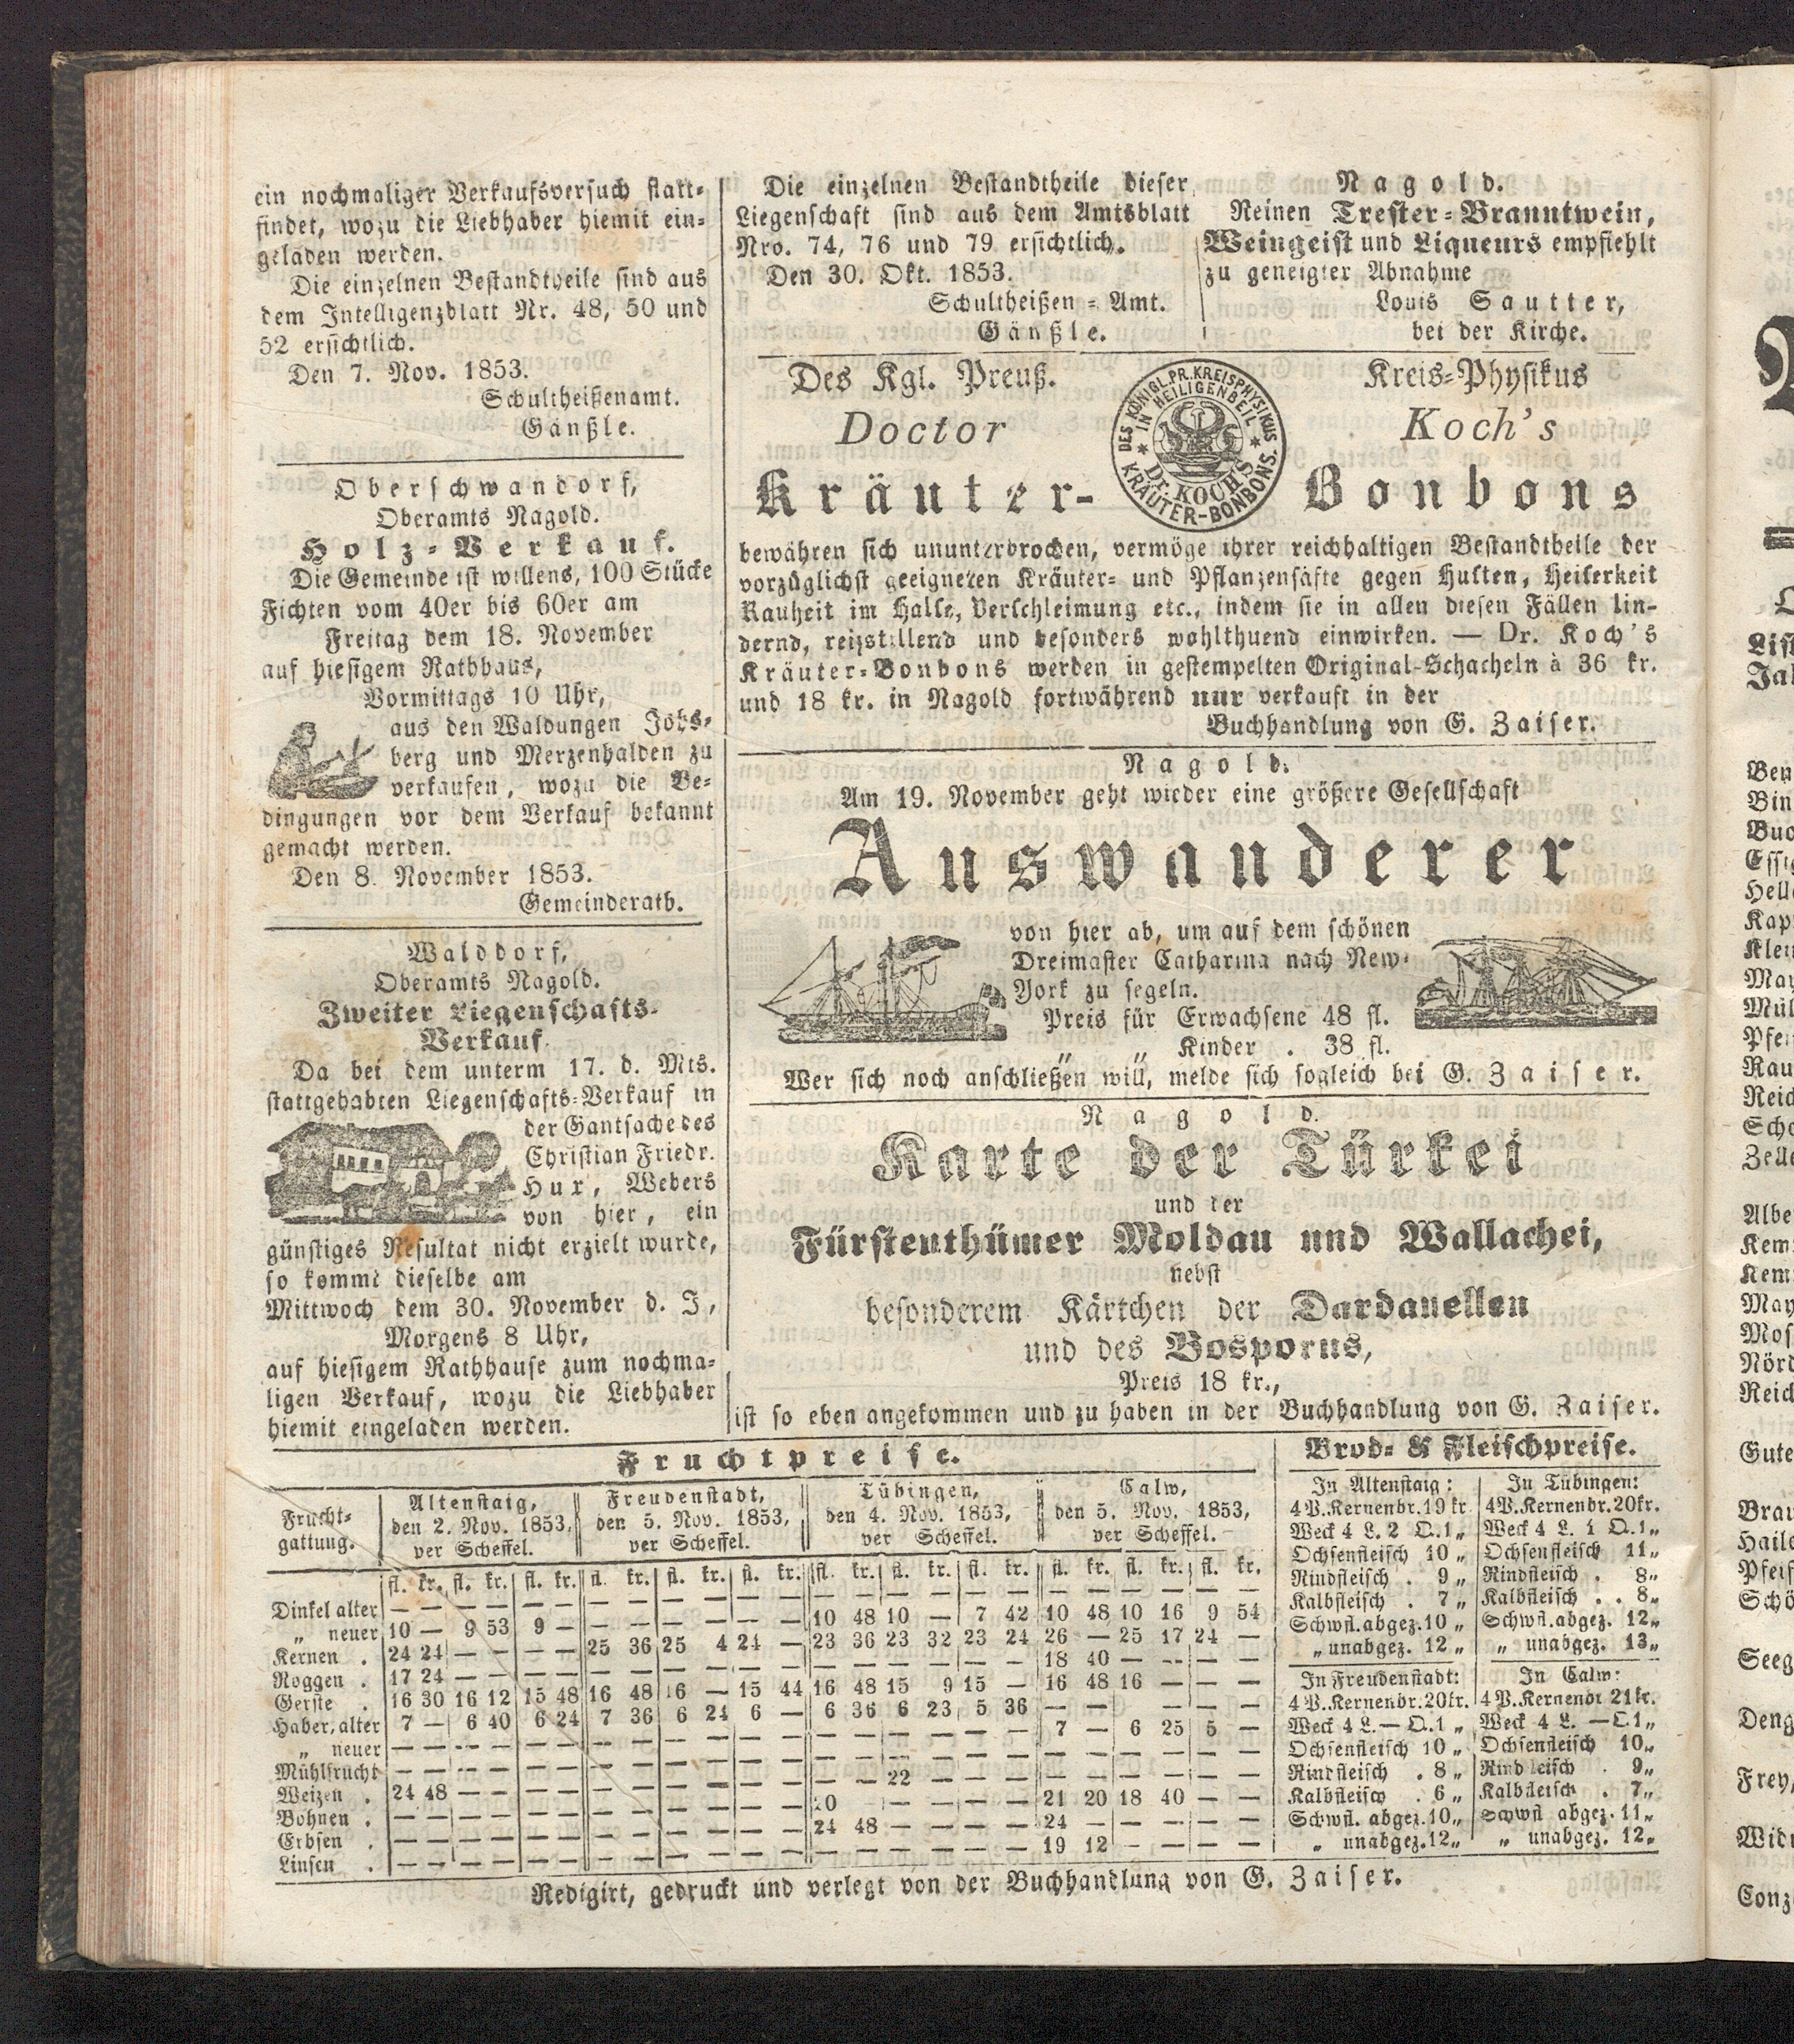 ein nochmaliger Verkaufsversuch statt-
findet, wozu die Liebhaber hiemit ein-
geladen werden.
Die einzelnen Bestandtheile sind aus
dem Intelligenzblatt Nr. 48, 50 und
52 ersichtlich.
Den 7. Nov. 1853.
Schultheißenamt.
Gänßle.
Oberschwandorf,
Oberamts Nagold.
Holz-Verkauf.
Die Gemeinde ist willens, 100 Stücke
Fichten vom 40er bis 60er am
Freitag dem 18. November
auf hiesigem Rathhaus,
Vormittags 10 Uhr,
aus den Waldungen Johs-
berg und Merzenhalden zu
verkaufen, wozu die Be-
dingungen vor dem Verkauf bekannt
gemacht werden.
Den 8. November 1853.
Gemeinderath.
Walddorf,
Oberamts Nagold.
Zweiter Liegenschafts-
Verkauf.
Da bei dem unterm 17. d. Mts.
stattgehabten Liegenschafts-Verkauf in
der Gantsache des
Christian Friedr.
Hur, Webers
von hier, ein
günstiges Resultat nicht erzielt wurde,
so kommt dieselbe am
Mittwoch dem 30. November d. J,
Morgens 8 Uhr,
auf hiesigem Rathhause zum nochma-
ligen Verkauf, wozu die Liebhaber
hiemit eingeladen werden.
Die einzelnen Bestandtheile dieser
Liegenschaft sind aus dem Amtsblatt
Nro. 74, 76 und 79 ersichtlich.
Den 30. Okt. 1853.
Schultheißen-Amt.
Gänßle.
Nagold.
Reinen Trester-Branntwein,
Weingeist und Liqueurs empfiehlt
zu geneigter Abnahme
Louis Sautter,
bei der Kirche.
Des Kgl. Preuß. Kreis-Physikus
Doctor Koch's
Kräuter- Bonbons
DES KÖNIGL. PR. KREISPHYSIKUS
IN HEILIGENBEIL
Dr. KOCH'S
KRÄUTER-BONBONS.
bewähren sich ununterbrochen, vermöge ihrer reichhaltigen Bestandtheile der
vorzüglichst geeigneten Kräuter- und Pflanzensäfte gegen Husten, Heiserkeit
Rauheit im Halse, Verschleimung etc., indem sie in allen diesen Fällen lin-
dernd, reizstillend und besonders wohlthuend einwirken. — Dr. Koch's
Kräuter-Bonbons werden in gestempelten Original-Schacheln à 36 kr.
und 18 kr. in Nagold fortwährend nur verkauft in der
Buchhandlung von G. Zaiser.
Nagold.
Am 19. November geht wieder eine größere Gesellschaft
Auswanderer
von hier ab, um auf dem schönen
Dreimaster Catharina nach New-
York zu segeln.
Preis für Erwachsene 48 fl.
„ „ Kinder . 38 fl.
Wer sich noch anschließen will, melde sich sogleich bei G. Zaiser.
Nagold.
Karte der Türkei
und der
Fürstenthümer Moldau und Wallachei,
nebst
besonderem Kärtchen der Dardanellen
und des Bosporus,
Preis 18 kr.,
ist so eben angekommen und zu haben in der Buchhandlung von G. Zaiser.
Fruchtpreise.
Frucht-
gattung.
Altenstaig,
den 2. Nov. 1853,
per Scheffel.
Freudenstadt,
den 5. Nov. 1853,
per Scheffel.
Tübingen,
den 4. Nov. 1853,
per Scheffel.
Calw,
den 5. Nov. 1853,
per Scheffel.
fl. kr. fl. kr. fl. kr. fl. kr. fl. kr. fl. kr. fl. kr. fl. kr. fl. kr. fl. kr. fl. kr. fl. kr.
Dinkel alter — — — — — — — — — — — — — — — — — — — — — — — —
„ neuer 10 — 9 53 9 — — — — — — — 10 48 10 — 7 42 10 48 10 16 9 54
Kernen . 24 24 — — — — 25 36 25 4 24 — 23 36 23 32 23 24 26 — 25 17 24 —
Roggen . 17 24 — — — — — — — — — — — — — — — — 18 40 — — — —
Gerste . 16 30 16 12 15 48 16 48 16 — 15 44 16 48 15 9 15 — 16 48 16 — — —
Haber, alter 7 — 6 40 6 24 7 36 6 24 6 — 6 36 6 23 5 36 — — — — — —
„ neuer — — — — — — — — — — — — — — — — — — 7 — 6 25 5 —
Mühlfrucht — — — — — — — — — — — — — — — — — — — — — — — —
Weizen . 24 48 — — — — — — — — — — — — 22 — — — — — — — — —
Bohnen . — — — — — — — — — — — — 20 — — — — 21 20 18 40 — —
Erbsen . — — — — — — — — — — — — 24 48 — — — — 24 — — — — —
Linsen . — — — — — — — — — — — — — — — — — — 19 12 — — — —
Brod- & Fleischpreise.
In Altenstaig:
4 P. Kernenbr. 19 kr.
Weck 4 L. 2 Q. 1 „
Ochsenfleisch 10 „
Rindfleisch . 9 „
Kalbfleisch . 7 „
Schwfl. abgez. 10 „
„ unabgez. 12 „
In Tübingen:
4 P. Kernenbr. 20 kr.
Weck 4 L. 1 Q. 1 „
Ochsenfleisch 11 „
Rindfleisch . 8 „
Kalbfleisch . . 8 „
Schwfl. abgez. 12 „
„ unabgez. 13 „
In Freudenstadt:
4 P. Kernenbr. 20 kr.
Weck 4 L. — Q. 1 „
Ochsenfleisch 10 „
Rindfleisch . 8 „
Kalbfleisch . 6 „
Schwfl. abgez. 10 „
„ unabgez. 12 „
In Calw:
4 P. Kernenbr 21 kr.
Weck 4 L. — Q. 1 „
Ochsenfleisch 10 „
Rindfleisch . 9 „
Kalbfleisch . 7 „
Schwfl abgez. 11 „
„ unabgez. 12 „
Redigirt, gedruckt und verlegt von der Buchhandlung von G. Zaiser.